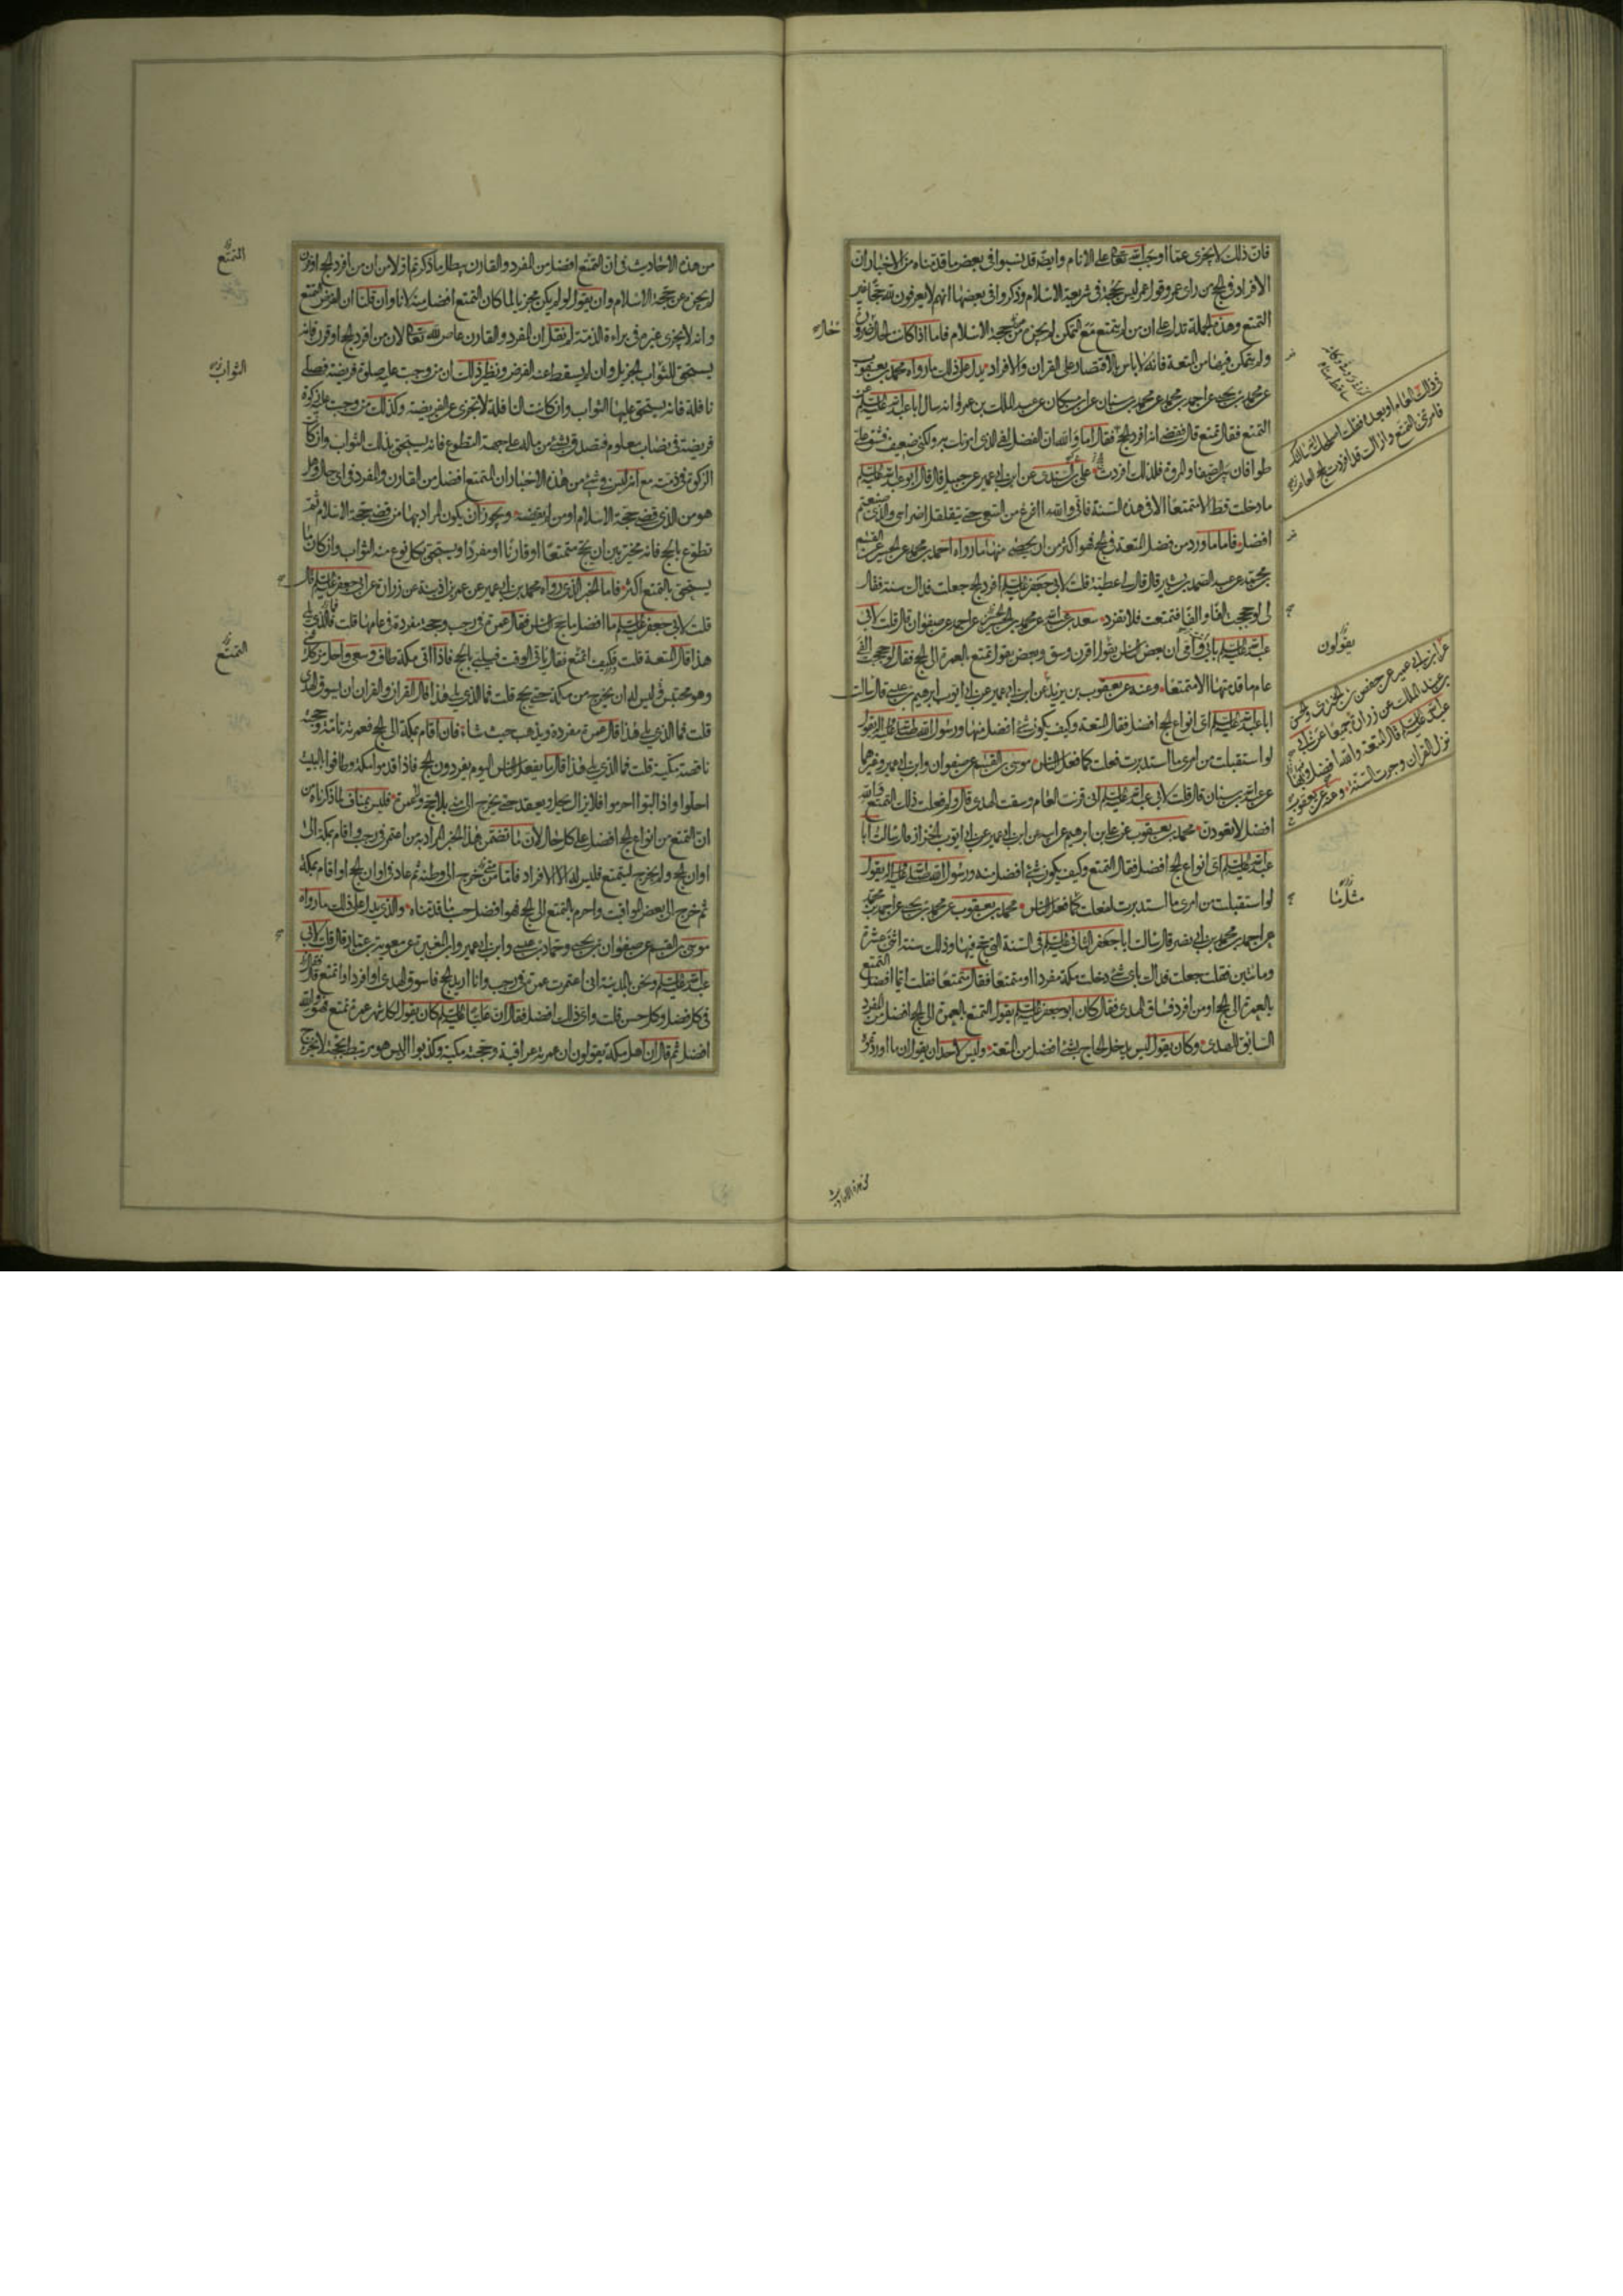 فان ذلك لا يجزى عما اوجب الله تعالى على الانام وايضا قد نسبوا فى بعض ما قدمناه من الاخبار ان
الافراد فى الحج من راى عمر وقول عمر ليس بحجة فى شريعة الاسلام وذكروا فى بعضها انهم لا يعرفون لله حجا غير
التمتع وهذه الجملة تدل على ان من لم يتمتع مع التمكن لم يجزه عن حجة الاسلام فاما اذا كانت الحال ضرورة
ولم يتمكن فيها من المتعة فانه لا باس بالاقتصار على القران والافراد يدل على ذلك ما رواه محمد بن يعقوب
عن محمد بن يحيى عن احمد بن محمد عن محمد بن سنان عن ابن مسكان عن عبد الملك بن عمرو انه سال ابا عبد الله عليه السلم عن
التمتع فقال تمتع قال فقضى انه افرد الحج فقال اما والله ان الفضل لفى الذى امرتك به ولكنى ضعيف فشق على
طوافان بين الصفا والمروة فلذلك افردت على بن السندى عن ابن ابى عمير عن جميل قال قال ابو عبد الله عليه السلم
ما دخلت قط الا متمتعا الا فى هذه السنة فانى والله ما افرغ من السعى حتى تتقلقل اضراسى والذى صنعتم
افضل فاما ما ورد من فضل المتعة فى الحج فهو اكثر من ان يحصى منها ما رواه احمد بن محمد عن الحسين عن القسم
بن محمد عن عبد الصمد بن بشير قال قال لى عطية قلت لابى جعفر عليه السلم افرد الحج جعلت فداك سنة فقال
لى لو حججت الفا والفا فتمتعت فلا تفرد سعد بن عبد الله عن محمد بن الحسين عن احمد عن صفوان قال قلت لابى
عبد الله عليه السلم بابى وامى ان بعض الناس يقول اقرن وسق وبعض يقول تمتع بالعمرة الى الحج فقال لو حججت الفى
عام ما قدمتها الا متمتعا وعنه عن يعقوب بن يزيد عن ابن ابى عمير عن ابى ايوب ابرهيم بن عيسى قال سالت
ابا عبد الله عليه السلم اى انواع الحج افضل فقال المتعة وكيف يكون شئ افضل منها ورسول الله صلى الله عليه واله يقول
لو استقبلت من امرى ما استدبرت فعلت كما فعل الناس موسى بن القسم عن صفوان وابن ابى عمير وغيرهما
عن عبد الله بن سنان قال قلت لابى عبد الله عليه السلم انى قرنت العام وسقت الهدى قال ولم فعلت ذلك التمتع والله
افضل لا تعودن محمد بن يعقوب عن على بن ابرهيم عن ابيه عن ابن ابى عمير عن ابى ايوب الخزاز قال سالت ابا
عبد الله عليه السلم اى انواع الحج افضل فقال التمتع وكيف يكون شئ افضل منه ورسول الله صلى الله عليه واله يقول
لو استقبلت من امرى ما استدبرت لفعلت كما فعل الناس محمد بن يعقوب عن محمد بن يحيى عن احمد بن محمد
عن احمد بن محمد بن ابى نصر قال سالت ابا جعفر الثانى عليه السلم فى السنة التى حج فيها وذلك سنة اثنتى عشرة
ومائتين فقلت جعلت فداك باى شئ دخلت مكة مفردا او متمتعا فقال متمتعا فقلت ايما افضل المتمتع
بالعمرة الى الحج او من افرد فساق الهدى فقال كان ابو جعفر عليه السلم يقول المتمتع بالعمرة الى الحج افضل من المفرد
السائق للهدى وكان يقول ليس يدخل الحاج بشئ افضل من المتعة وليس لاحد ان يقول ان ما اوردتموه
فى ذلك العام او بعده فقلت اصلحك الله سالتك
فامرتنى بالتمتع واراك قد افردت الحج العام
يقولون
عن ابن ابى عمير عن حفص بن البخترى والحسن
بن عبد الملك عن زرارة جميعا عن ابى
عبد الله عليه السلم قال المتعة والله افضل وبها
نزل القران وجرت السنة وعنه عن يعقوب
من هذه الاحاديث
من هذه الاحاديث فى ان التمتع افضل من المفرد والقارن يبطل ما ذكرتم اولا من ان من افرد الحج او قرن
لم يجزه عن حجة الاسلام وان يقول لو لم يكن مجزيا لما كان التمتع افضل منه لانا وان قلنا ان الفرض التمتع
وانه لا يجزى غيره فى براءة الذمة لم نقل ان المفرد والقارن عاص لله تعالى لان من افرد الحج او قرن فانه
يستحق الثواب الجزيل وان لم يسقط عنه الفرض ونظير ذلك ان من وجبت عليه صلوة فريضة فصلى
نافلة فانه يستحق عليها الثواب وان كانت النافلة لا تجزى عن الفريضة وكذلك من وجبت عليه زكوة
فريضة فى نصاب معلوم فتصدق بشئ من ماله على جهة التطوع فانه يستحق بذلك الثواب وان كانت
الزكوة فى ذمته مع انه ليس فى شئ من هذه الاخبار ان المتمتع افضل من القارن والمفرد فى اى حال وهل
هو من الذى قضى حجة الاسلام او من لم يقضه ويجوز ان يكون المراد بها من قضى حجة الاسلام ثم
تطوع بالحج فانه مخير بين ان يحج متمتعا او قارنا او مفردا ويستحق بكل نوع منه الثواب وان كان ما
يستحق بالتمتع اكثر فاما الخبر الذى رواه محمد بن ابى عمير عن عمر بن اذينة عن زرارة عن ابى جعفر عليه السلم قال
قلت لابى جعفر عليه السلم ما افضل ما حج الناس فقال عمرة فى رجب وحجة مفردة فى عامها قلت فالذى يلى
هذا قال المتعة قلت وكيف اتمتع فقال ياتى الوقت فيلبى بالحج فاذا اتى مكة طاف وسعى واحل من كل شئ
وهو محتبس وليس له ان يخرج من مكة حتى يحج قلت فما الذى يلى هذا قال القران والقران ان يسوق الهدى
قلت فما الذى يلى هذا قال عمرة مفردة ويذهب حيث شاء فان اقام بمكة الى الحج فعمرته تامة وحجته
ناقصة مكية قلت فما الذى يلى هذا قال ما يفعل الناس اليوم يفردون الحج فاذا قدموا مكة وطافوا بالبيت
احلوا واذا لبوا احرموا فلا يزال يحل ويعقد حتى يخرج الى منى بلا حج ولا عمرة فليس بمناف لما ذكرناه من
ان التمتع من انواع الحج افضل على كل حال لان ما تضمن هذا الخبر المراد به من اعتمر فى رجب واقام بمكة الى
اوان الحج ولم يخرج ليتمتع فليس له الا الافراد فاما من خرج الى وطنه ثم عاد فى اوان الحج او اقام بمكة
ثم خرج الى بعض المواقيت واحرم بالتمتع الى الحج فهو افضل حسب ما قدمناه والذى يدل على ذلك ما رواه
موسى بن القسم عن صفوان بن يحيى وحماد بن عيسى وابن ابى عمير وابن المغيرة عن معوية بن عمار قال قلت لابى
عبد الله عليه السلم ونحن بالمدينة انى اعتمرت عمرة فى رجب وانا اريد الحج فاسوق الهدى او افرد او اتمتع فقال
فى كل فضل وكل حسن قلت واى ذلك افضل فقال ان عليا عليه السلم كان يقول لكل شهر عمرة تمتع فهو والله
افضل ثم قال ان اهل مكة يقولون ان عمرته عراقية وحجته مكية وكذبوا اوليس هو مرتبطا بحجه لا يخرج
التمتع
الثواب
المتمتع